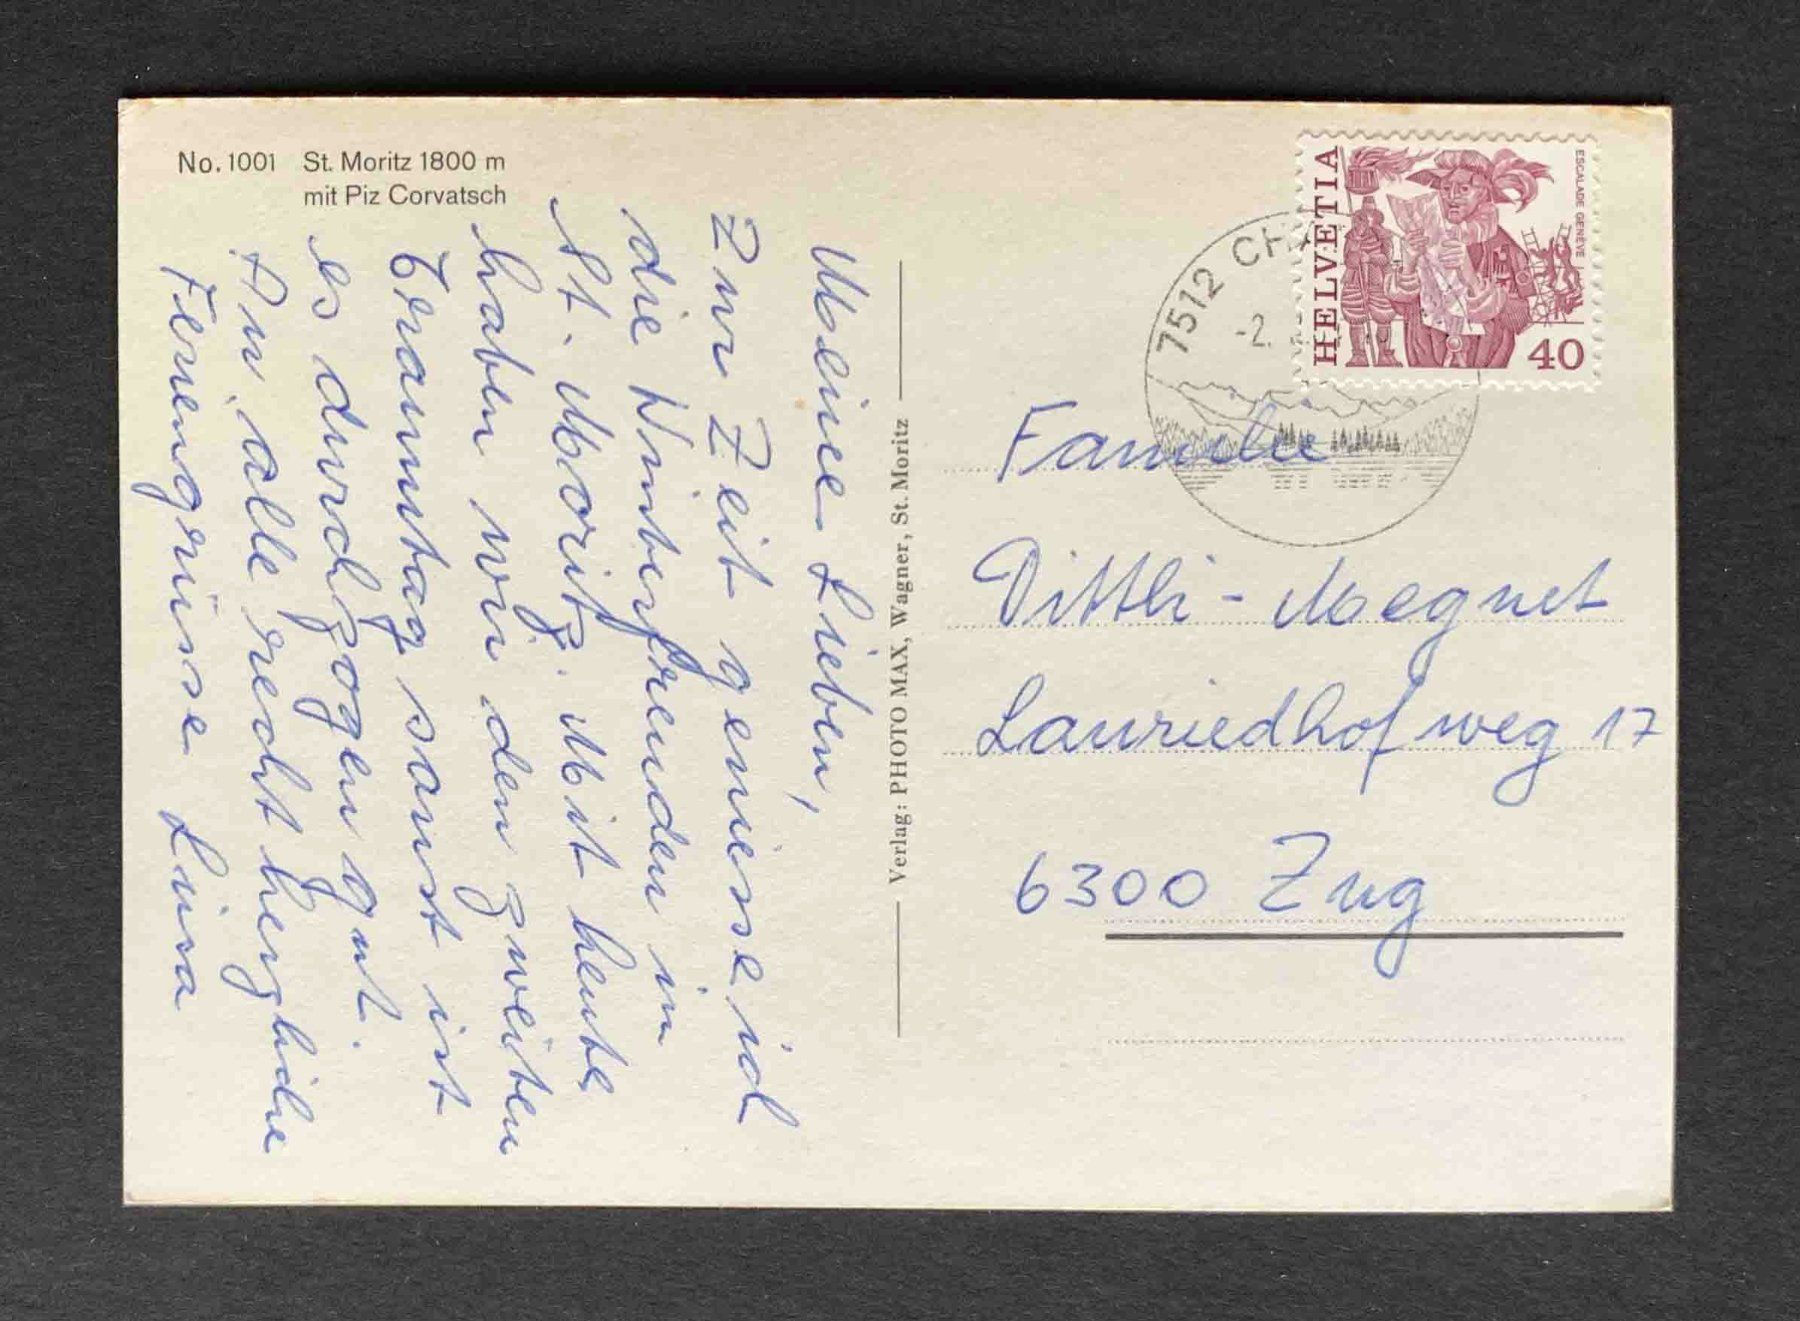 No. 1001 St. Moritz 1800 m
mit Piz Corvatsch
Meine Lieben,
Zur Zeit geniesse ich
die Winterfreuden in
St. Moritz. Mit heute
haben wir den zweiten
Tranntag sonst ist
es durchzogen gut.
An alle recht herzliche
Feriengrüsse Lina
Verlag: PHOTO MAX, Wagner, St. Moritz
7512
-2.
HELVETIA
ESCALADE GENÈVE
40
Familie
Dittli-Megnet
Lauriedhofweg 17
6300 Zug